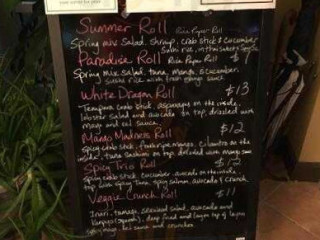 Summer Roll Rice Paper Roll
Spring mix salad, shrimp, crab stick & cucumber
Sushi rice, in thai sauce
Paradise Roll Rice Paper Roll $9
Spring Mix Salad, tuna, mango, & cucumber,
Sushi rice with fresh mango sauce
White Dragon Roll $13
Tempura crab stick, asparagus on the inside,
lobster salad and avocado on top, drizzled with
mayo and eel sauce.
Mango Madness Roll $12
spicy crab stick, fresh ripe mango, cilantro on the
inside, tuna sashimi on top, drizzled with mango sauce
Spicy Trio Roll $12
spicy crab stick, cucumber, avocado on the inside
top with spicy tuna, spicy salmon, avocado & crunch
Veggie Crunch Roll $11
Inari, tamago, seaweed salad, avocado and
deep fried and
spicy mayo, eel sauce and